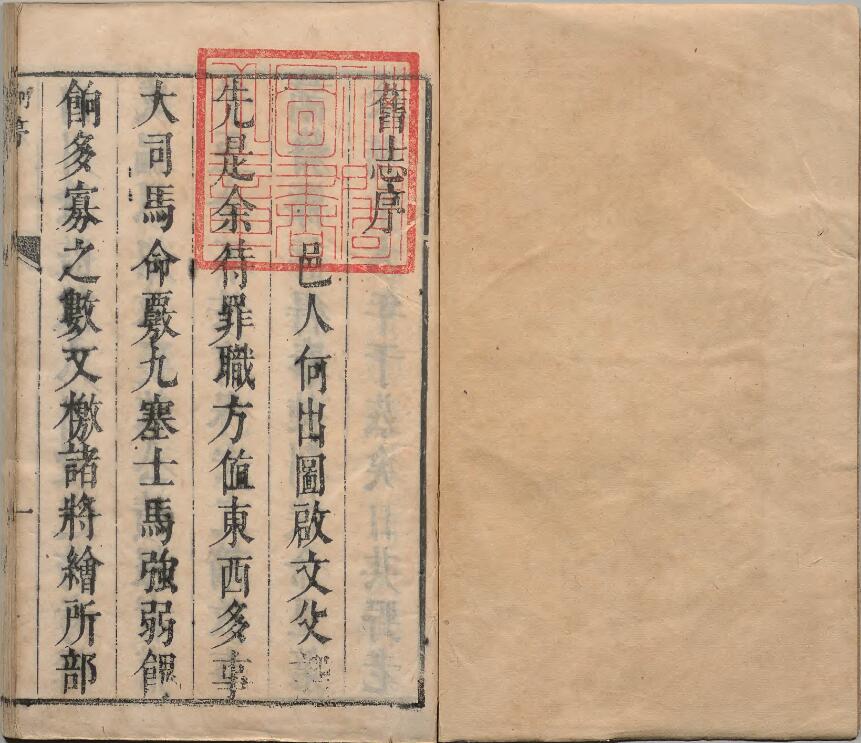 舊志序
邑人何出圖啟文父
先是余待罪職方值東西多事
大司馬命覈九塞士馬強弱餼
餉多寡之數又檄諸將繪所部